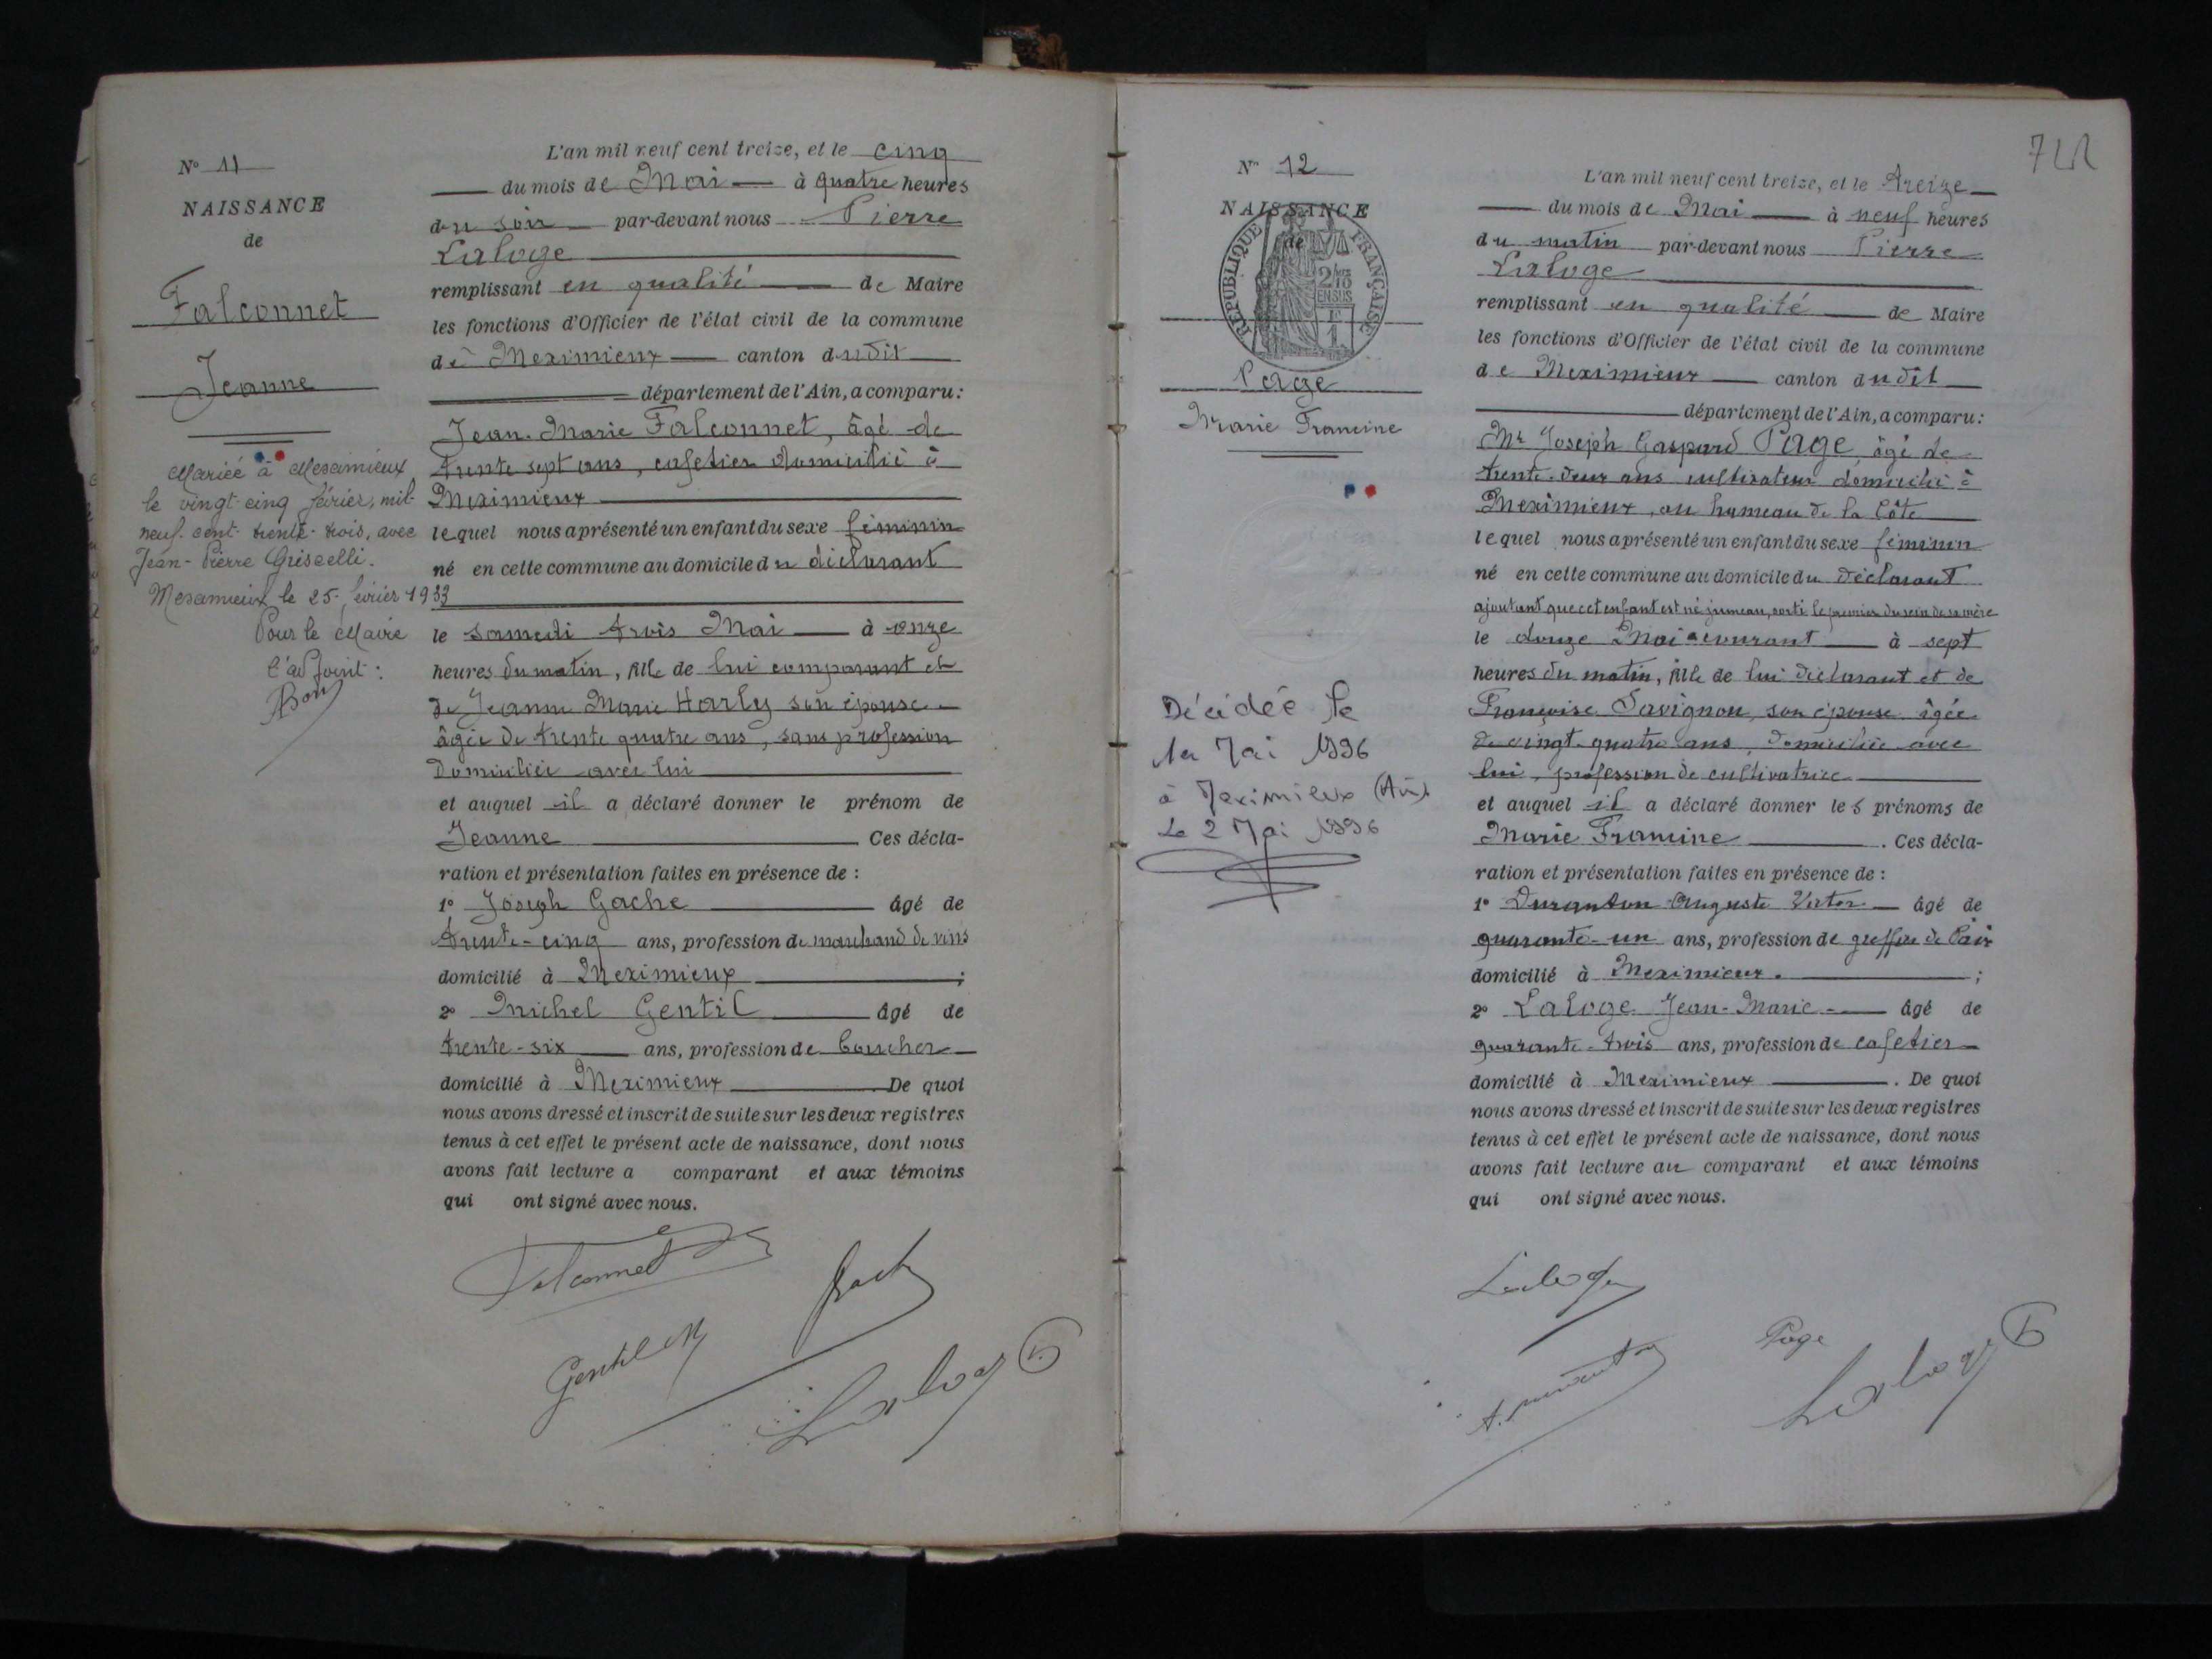 N° 11
NAISSANCE
de
Falconnet
Jeanne
Mariée à Meximieux
le vingt-cinq février, mil-
neuf. cent. trente-trois, avec
Jean-Pierre Griscelli.
Meximieux le 25 février 1933
Pour le Maire
l'adjoint :
L'an mil neuf cent treize, et le cinq
du mois de Mai à quatre heures
du soir par-devant nous Pierre
Laloge
remplissant en qualité de Maire
les fonctions d'Officier de l'état civil de la commune
de Meximieux canton dudit
département de l'Ain, a comparu :
Jean-Marie Falconnet, âgé de
trente sept ans, cafetier domicilié à
Meximieux
lequel nous a présenté un enfant du sexe féminin
né en cette commune au domicile du déclarant
le samedi trois Mai à onze
heures du matin, fille de lui comparant et
de Jeanne Marie Harly son épouse
âgée de trente quatre ans, sans profession
domiciliée avec lui
et auquel il a déclaré donner le prénom de
Jeanne Ces décla-
ration et présentation faites en présence de :
1° Joseph Gache âgé de
trente-cinq ans, profession de marchand de vins
domicilié à Meximieux ;
2° Michel Gentil âgé de
trente-six ans, profession de boucher
domicilié à Meximieux De quoi
nous avons dressé et inscrit de suite sur les deux registres
tenus à cet effet le présent acte de naissance, dont nous
avons fait lecture a comparant et aux témoins
qui ont signé avec nous.
Falconnet
Gache
Gentil M
Laloge
712
N° 12
NAISSANCE
de
RÉPUBLIQUE FRANÇAISE
2/10
EN SUS
1
Page
Marie Francine
Décédée le
1er Mai 1996
à Meximieux (Ain)
Le 2 Mai 1996
L'an mil neuf cent treize, et le treize
du mois de Mai à neuf heures
du matin par-devant nous Pierre
Laloge
remplissant en qualité de Maire
les fonctions d'Officier de l'état civil de la commune
de Meximieux canton dudit
département de l'Ain, a comparu :
Mr Joseph Gaspard Page, âgé de
trente-deux ans cultivateur domicilié à
Meximieux, au hameau de la Côte
lequel nous a présenté un enfant du sexe féminin
né en cette commune au domicile du déclarant
ajoutant que cet enfant est né jumeau, sorti le premier du sein de sa mère
le douze Mai courant à sept
heures du matin, fille de lui déclarant et de
Françoise Savignon, son épouse âgée
de vingt-quatre ans, domiciliée avec
lui, profession de cultivatrice
et auquel il a déclaré donner les prénoms de
Marie Francine . Ces décla-
ration et présentation faites en présence de :
1° Duranton Auguste Victor âgé de
quarante-un ans, profession de greffier de Paix
domicilié à Meximieux. ;
2° Laloge Jean-Marie âgé de
quarante-trois ans, profession de cafetier
domicilié à Meximieux . De quoi
nous avons dressé et inscrit de suite sur les deux registres
tenus à cet effet le présent acte de naissance, dont nous
avons fait lecture au comparant et aux témoins
qui ont signé avec nous.
Laloge
Page
Laloge